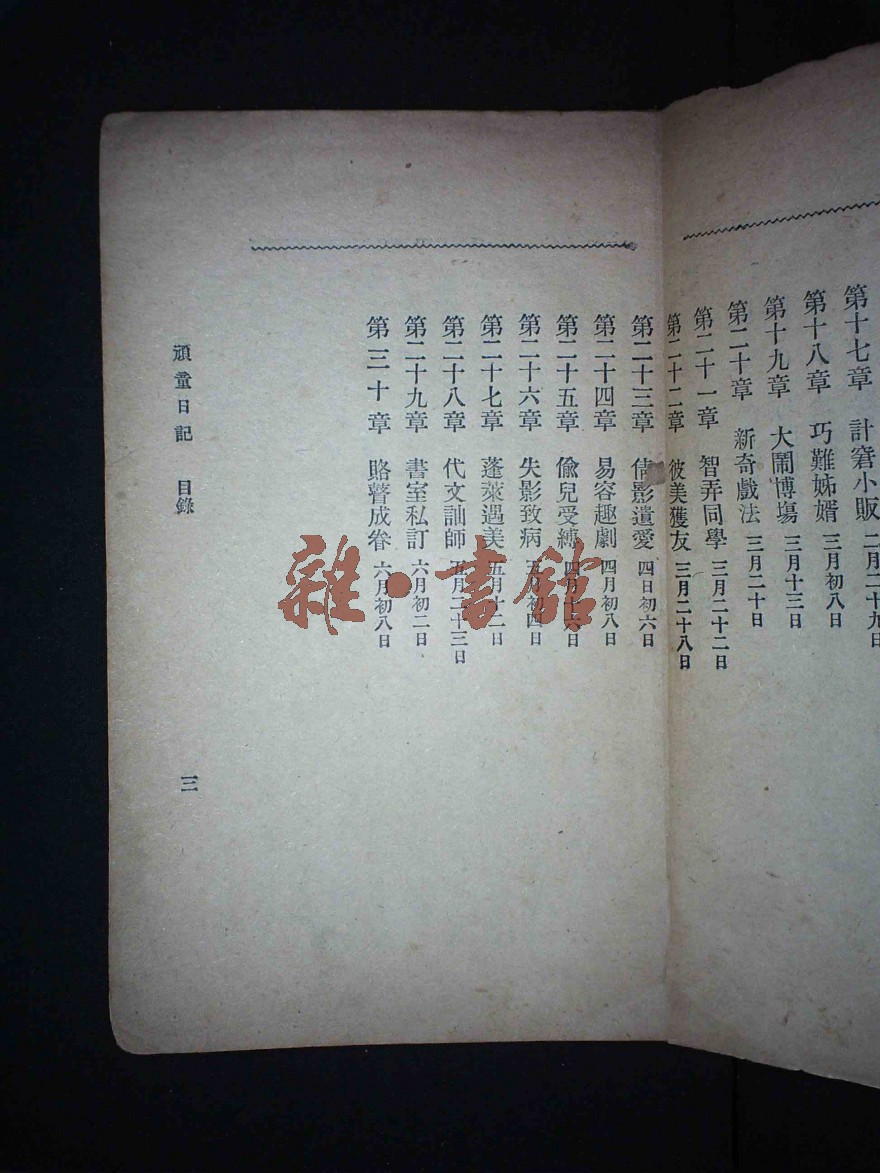 第十七章　計窘小販　二月二十九日
第十八章　巧難姊婿　三月初八日
第十九章　大鬧博塲　三月十三日
第二十章　新奇戲法　三月二十日
第二十一章　智弄同學　三月二十二日
第二十二章　彼美獲友　三月二十八日
第二十三章　倩影遺愛　四日初六日
第二十四章　易容趣劇　四月初八日
第二十五章　偸兒受縛　四月十六日
第二十六章　失影致病　五月初四日
第二十七章　蓬萊遇美　五月十二日
第二十八章　代文訕師　五月二十三日
第二十九章　書室私訂　六月初二日
第三十章　賂瞽成眷　六月初八日
頑童日記　目錄
三
雜·書館